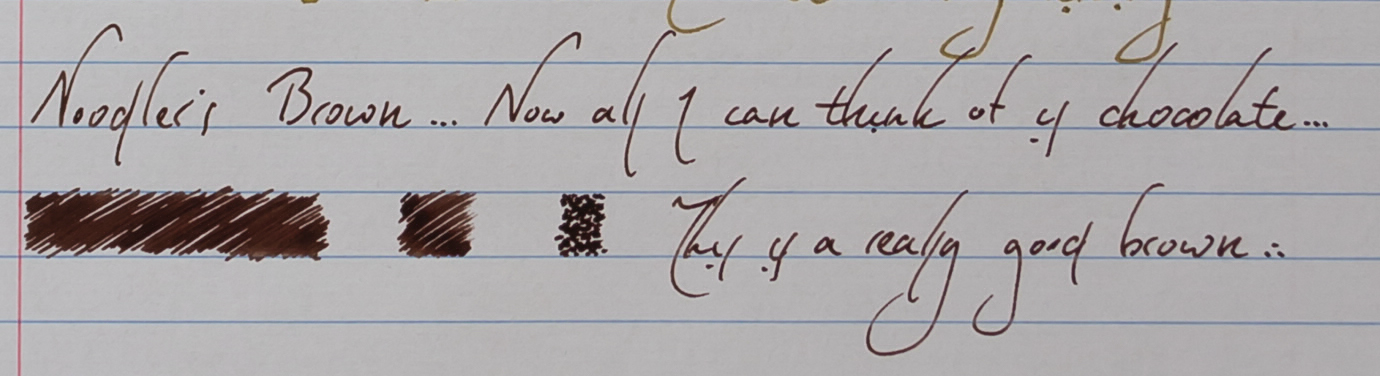 Noodler's Brown... Now all I can think of is chocolate...
This is a really good brown...